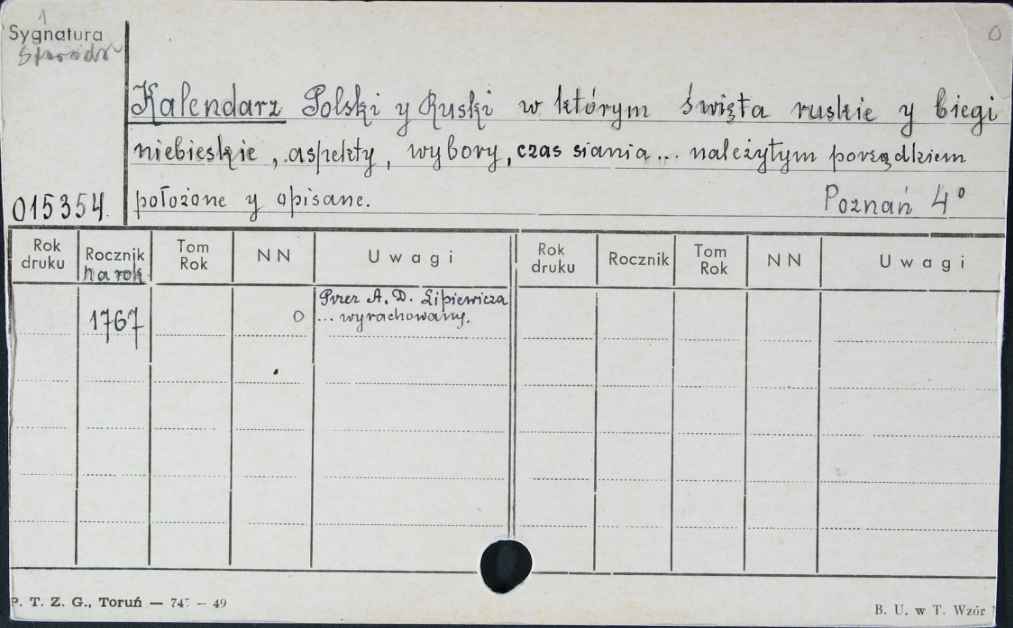 1
Sygnatura
0
Kalendarz Polski y Ruski w którym święta ruskie y biegi
niebieskie, aspekty, wybory, czas siania... należytym porządkiem
015354. położone y opisane. Poznań 4°
Rok druku Rocznik na rok Tom Rok N N Uwagi Rok druku Rocznik Tom Rok N N Uwagi
1767 0 Przez A. D. Lipiewicza
... wyrachowany.
P. T. Z. G., Toruń — 74 – 49
B. U. w T. Wzór